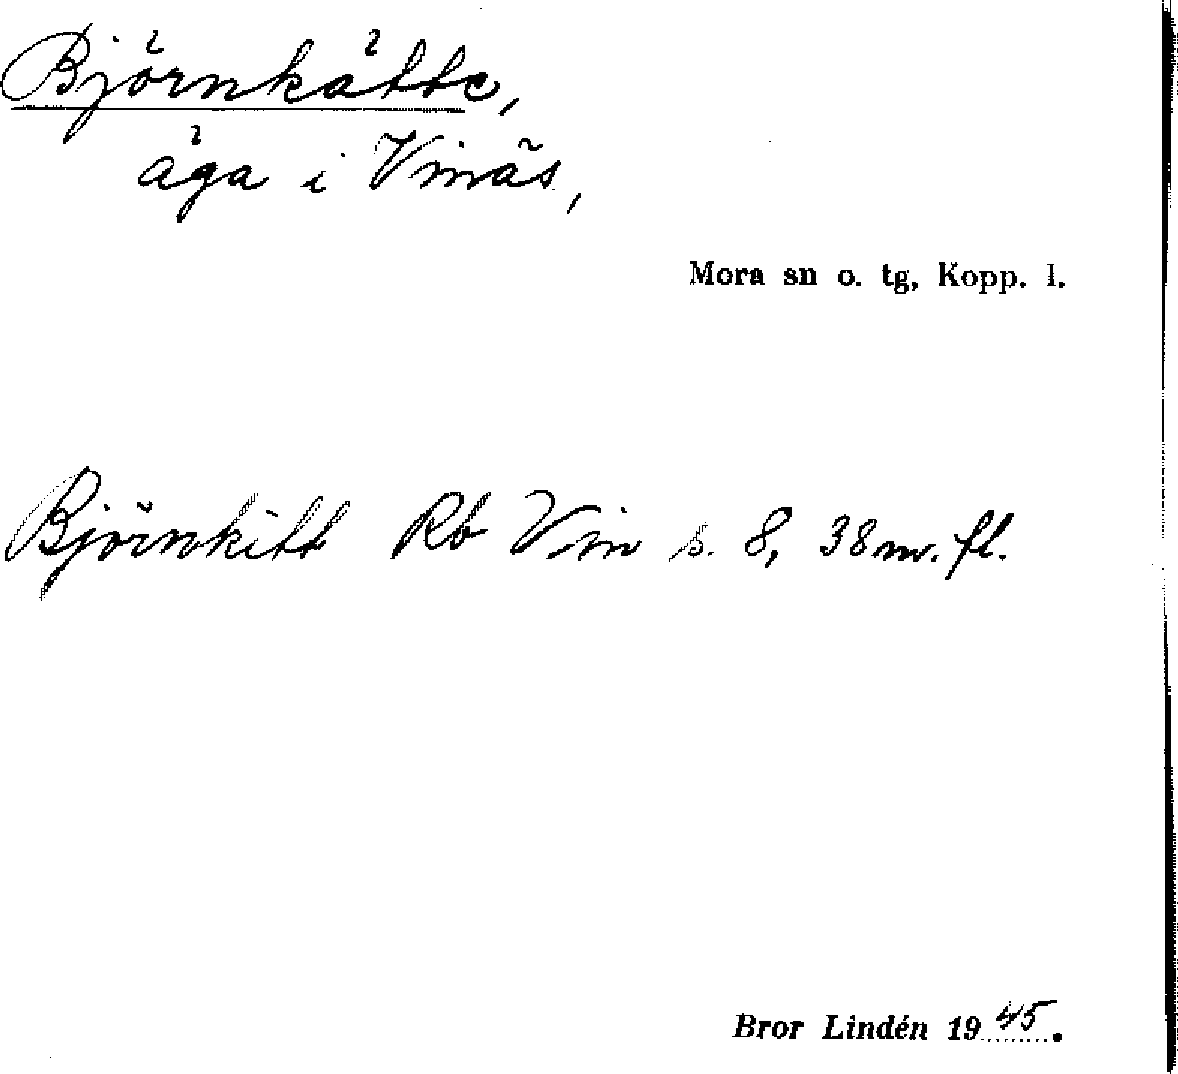 Björnkätte,
äga i Vinäs,
Mora sn o. tg, Kopp. l.
Björnkitt Rb Vin s. 8, 38 m. fl.
Bror Lindén 1945.